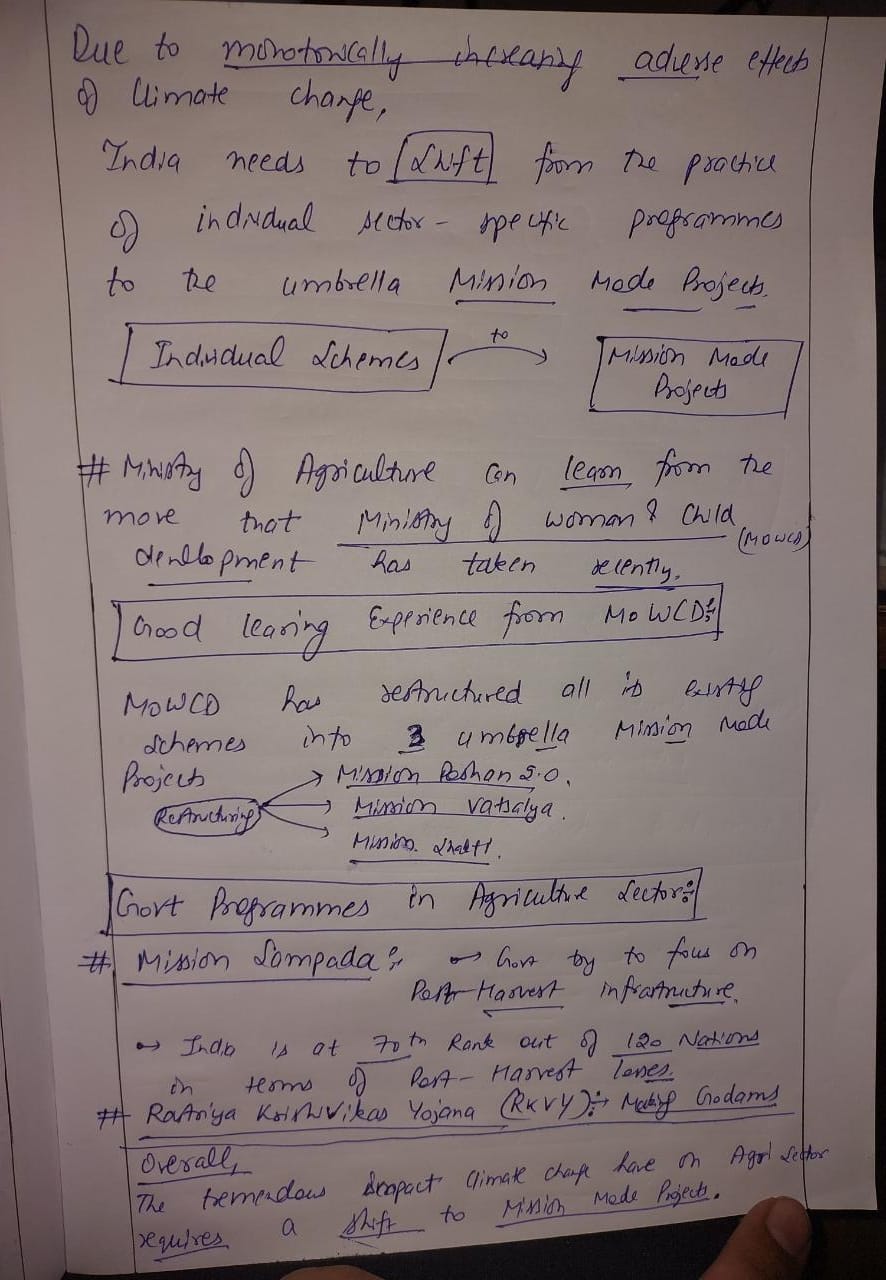 Due to monotonically increasing adverse effects
of Climate change,
India needs to Shift from the practice
of individual sector-specific programmes
to the umbrella Mission Mode Projects.
Individual Schemes to Mission Mode
Projects
# Ministry of Agriculture can learn from the
move that Ministry of woman & Child
(MoWCD)
development has taken recently.
Good learing Experience from MoWCD:
MoWCD has restructured all its existing
schemes into 3 umbrella Mission Mode
Projects → Mission Poshan 2.0.
Restructuring → Mission Vatsalya.
→ Mission Shakti.
Govt Programmes in Agriculture Sector:
# Mission Sampada: → Govt try to focus on
Post-Harvest infrastructure.
→ India is at 70th Rank out of 120 Nations
in terms of Post-Harvest losses.
# Rastriya Krishi Vikas Yojana (RKVY): → Making Godams
Overall,
The tremendous impact Climate change have on Agri Sector
requires a shift to Mission Mode Projects.